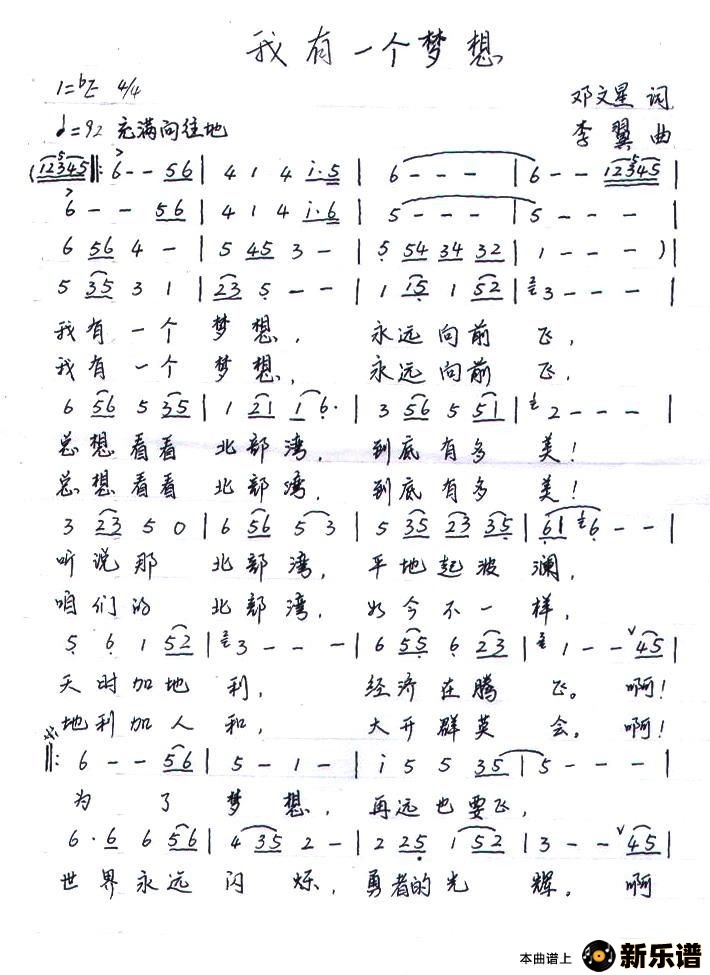 我有一个梦想
1=bE 4/4
邓文星 词
♩=92 充满向往地
李翼 曲
(12345 ‖: 6 - - 56 | 4 1 4 i·5 | 6 - - - | 6 - - 12345 |
6 - - 56 | 4 1 4 i·6 | 5 - - - | 5 - - - |
6 56 4 - | 5 45 3 - | 5 54 34 32 | 1 - - - ) |
5 35 3 1 | 23 5 - - | 1 15 1 52 | 3 - - - |
我有一个梦想，永远向前飞，
我有一个梦想，永远向前飞，
6 56 5 35 | 1 21 1 6· | 3 56 5 51 | 2 - - - |
总想看看北部湾，到底有多美！
总想看看北部湾，到底有多美！
3 23 5 0 | 6 56 5 3 | 5 35 23 35 | 61 6 - - |
听说那北部湾，平地起波澜，
咱们的北部湾，如今不一样，
5 6 1 52 | 3 - - - | 6 55 6 23 | 1 - - 45 |
天时加地利，经济在腾飞。啊！
地利加人和，大开群英会。啊！
‖: 6 - - 56 | 5 - 1 - | i 5 5 35 | 5 - - - |
为了梦想，再远也要飞，
6·6 6 56 | 4 35 2 - | 2 25 1 52 | 3 - - 45 |
世界永远闪烁，勇者的光辉。啊
本曲谱上 新乐谱